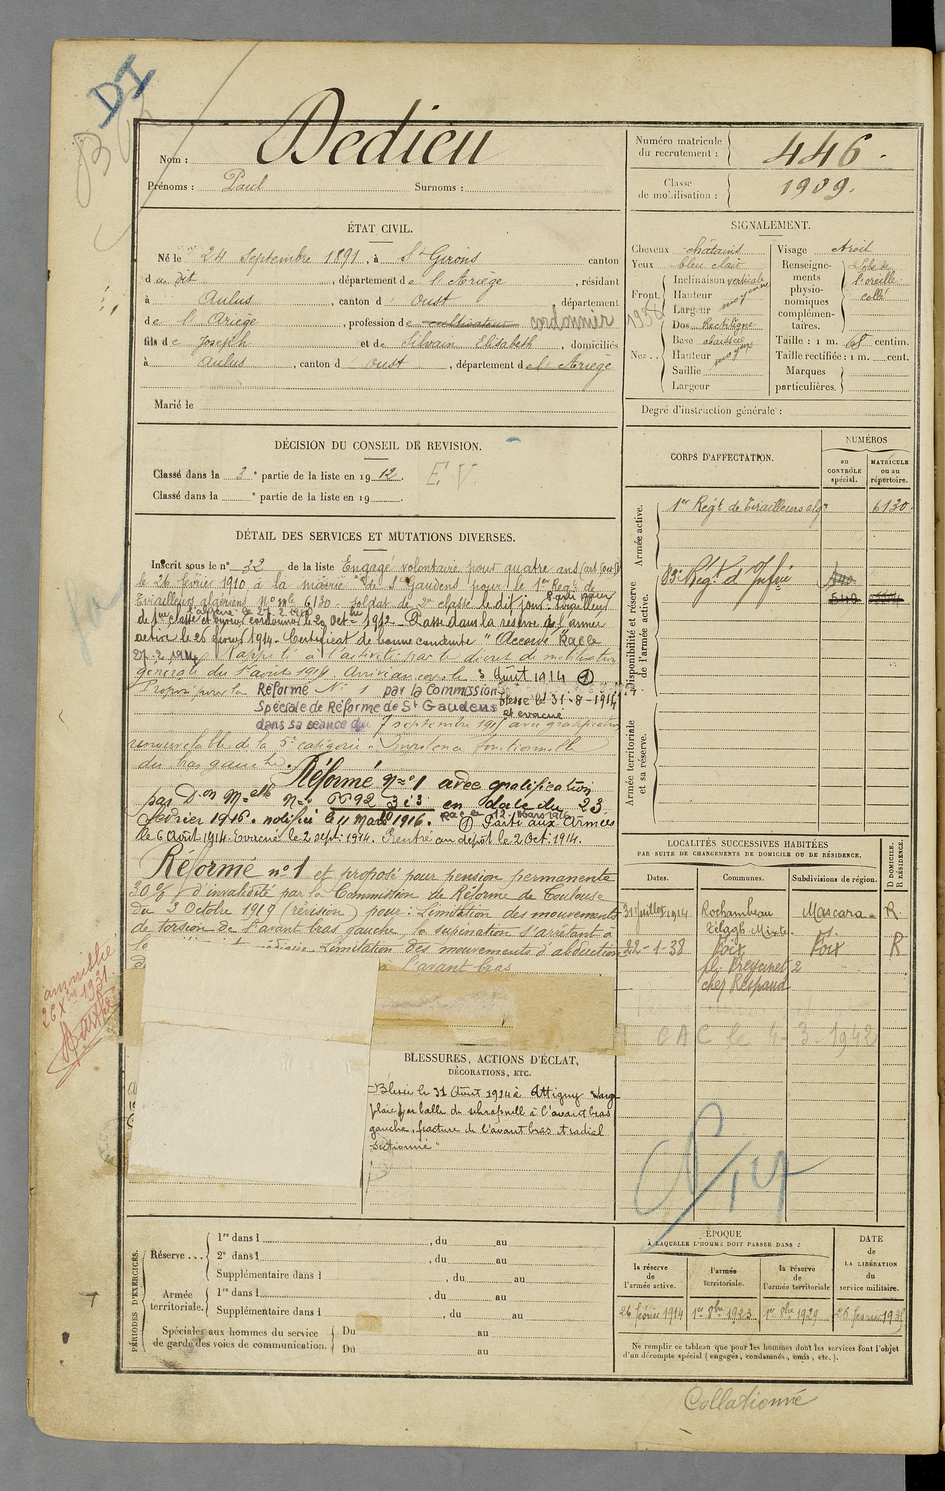 DI
Nom : Dedieu
Prénoms : Paul Surnoms :
Numéro matricule du recrutement : 446.
Classe de mobilisation : 1909.
ÉTAT CIVIL.
Né le 24 Septembre 1891, à St Girons canton
du dit, département de l'Ariège, résidant
à Aulus, canton d' Oust, département
de l'Ariège, profession de cultivateur cordonnier
fils de Joseph et de Silvain Elisabeth, domiciliés
à Aulus, canton d Oust, département de l'Ariège
Marié le
SIGNALEMENT.
Cheveux châtains
Yeux bleu clair
Front. Inclinaison verticale
Hauteur moyenne
Largeur
Nez... Dos Rectiligne
Base abaissée
Hauteur moyen
Saillie
Largeur
Visage droit
Renseignements physionomiques complémentaires. Lobe de l'oreille collé
Taille : 1 m. 68 centim.
Taille rectifiée : 1 m. cent.
Marques particulières.
Degré d'instruction générale :
DÉCISION DU CONSEIL DE REVISION.
Classé dans la 3e partie de la liste en 1912. E.V.
Classé dans la e partie de la liste en 19 .
DÉTAIL DES SERVICES ET MUTATIONS DIVERSES.
Inscrit sous le n° 32 de la liste Engagé volontaire pour quatre ans
le 26 février 1910 à la mairie de St Gaudens pour le 1er Regt de
Tirailleurs algériens No mle 6130. soldat de 2e classe le dit jour. Tirailleur
de 1ère classe et ouvrier cordonnier le 29 Octbre 1912. Passé dans la réserve de l'armée
active le 26 février 1914. Certificat de bonne conduite "Accordé"
27.2.1914 Rappelé à l'activité par le décret de mobilisation
générale du 1er août 1914. Arrivé au corps le 3 Août 1914 (1)
Proposé pour la Réforme N° 1 par la Commission blessé le 31-8-1914
Spéciale de Réforme de St Gaudens et évacué
dans sa séance du 7 septembre 1915 avec gratification
renouvelable de la 5e catégorie. Impotence fonctionnelle
du bras gauche. Réformé n° 1 avec gratification
par Don Melle n° 6692 313 en date du 23
Février 1916. notifié le 11 Mars 1916. (1) Parti aux Armées
le 6 Août 1914. Evacué le 2 sept. 1914. Rentré au dépôt le 2 Oct. 1914.
Réformé n° 1 et proposé pour pension permanente
30% d'invalidité par la Commission de Réforme de Toulouse
du 3 Octobre 1919 (révision) pour : Limitation des mouvements
de torsion de l'avant bras gauche, la supination s'arrêtant à
la Limitation des mouvements d'abduction
l'avant bras
BLESSURES, ACTIONS D'ÉCLAT,
DÉCORATIONS, ETC.
Blessé le 31 Août 1914 à Attigny "large
plaie par balle de schrapnell à l'avant bras
gauche, fracture de l'avant bras et radial
sectionné"
CORPS D'AFFECTATION.
NUMÉROS
au CONTRÔLE spécial.
MATRICULE ou au répertoire.
Armée active.
1er Regt de Tirailleurs algns 6130.
Disponibilité et réserve de l'armée active.
83e Regt d'Infrie 540
549
Armée territoriale et sa réserve.
LOCALITÉS SUCCESSIVES HABITÉES
PAR SUITE DE CHANGEMENTS DE DOMICILE OU DE RÉSIDENCE.
Dates. Communes. Subdivisions de région. D DOMICILE. R RÉSIDENCE.
31 Juillet 1914 Rochambeau Mascara R
Télagh Mixte
22-1-38 Foix Foix R
pl. Freycinet 2
chez Respaud
CAC le 4-3-1942
PÉRIODES D'EXERCICES.
Réserve... 1re dans l , du au
2e dans l , du au
Supplémentaire dans l , du au
Armée territoriale. 1re dans l , du au
Supplémentaire dans l , du au
Spéciales aux hommes du service de garde des voies de communication. Du au
Du au
ÉPOQUE
À LAQUELLE L'HOMME DOIT PASSER DANS :
la réserve de l'armée active.
l'armée territoriale.
la réserve de l'armée territoriale
DATE de LA LIBÉRATION du service militaire.
26 février 1914 1er 8bre 1923 1er 8bre 1929
Ne remplir ce tableau que pour les hommes dont les services font l'objet
d'un décompte spécial (engagés, condamnés, omis, etc.).
Collationné